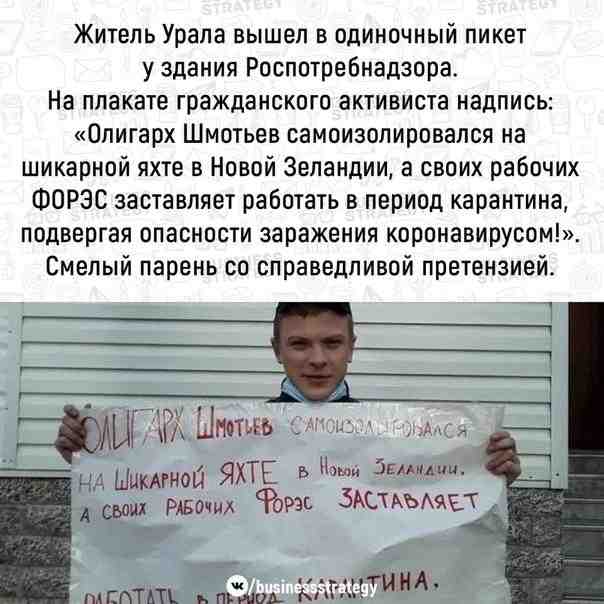 Житель Урала вышел в одиночный пикет
у здания Роспотребнадзора.
На плакате гражданского активиста надпись:
«Олигарх Шмотьев самоизолировался на
шикарной яхте в Новой Зеландии, а своих рабочих
ФОРЭС заставляет работать в период карантина,
подвергая опасности заражения коронавирусом!».
Смелый парень со справедливой претензией.
ОЛИГАРХ ШМОТЬЕВ САМОИЗОЛИРОВАЛСЯ
НА ШИКАРНОЙ ЯХТЕ В НОВОЙ ЗЕЛАНДИИ,
А СВОИХ РАБОЧИХ ФОРЭС ЗАСТАВЛЯЕТ
РАБОТАТЬ В ПЕРИОД КАРАНТИНА.
/businessstrategy